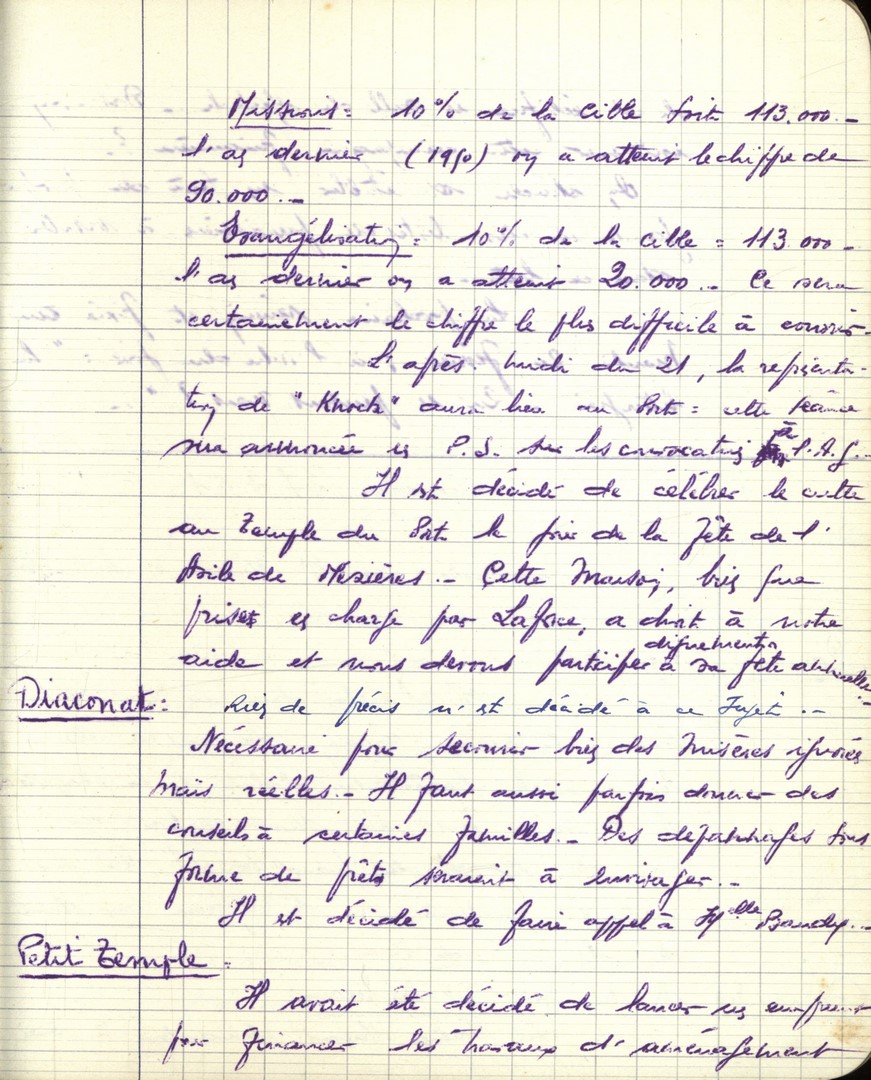 Missions : 10 % de la Cible soit 113.000 –
l'an dernier (1950) on a atteint le chiffre de
90.000 . –
Evangélisation : 10 % de la Cible = 113 000 –
l'an dernier on a atteint 20.000 . – Ce sera
certainement le chiffre le plus difficile à couvrir –
L'après-midi du 21, la représenta-
tion de "Knock" aura lieu au Port : cette séance
sera annoncée en P.S. sur les convocations à l'A.G. –
Il est décidé de célébrer le culte
au Temple du Port le jour de la Fête de l'
Asile de Mézières. – Cette Maison, bien que
prise en charge par Laforce, a droit à notre
aide et nous devons participer dignement à sa fête annuelle. –
Diaconat : Rien de précis n'est décidé à ce sujet . –
Nécessaire pour secourir bien des misères ignorées
mais réelles. – Il faut aussi parfois donner des
conseils à certaines familles. – Des dépannages sous
forme de prêts seraient à envisager. –
Il est décidé de faire appel à Melle . –
Petit Temple –
Il avait été décidé de lancer un emprunt
pour financer les travaux d'aménagement